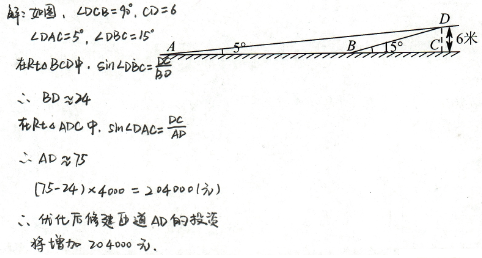 解: 如图, ∠DCB=90°, CD=6
∠DAC=5°, ∠DBC=15°
在Rt△BCD中, sin∠DBC=DC/BD
∴ BD≈24
在Rt△ADC中, sin∠DAC=DC/AD
∴ AD≈75
(75-24)×4000=204000(元)
∴ 优化后修建匝道AD的投资
将增加 204000 元.
D
6米
A 5° B 15° C